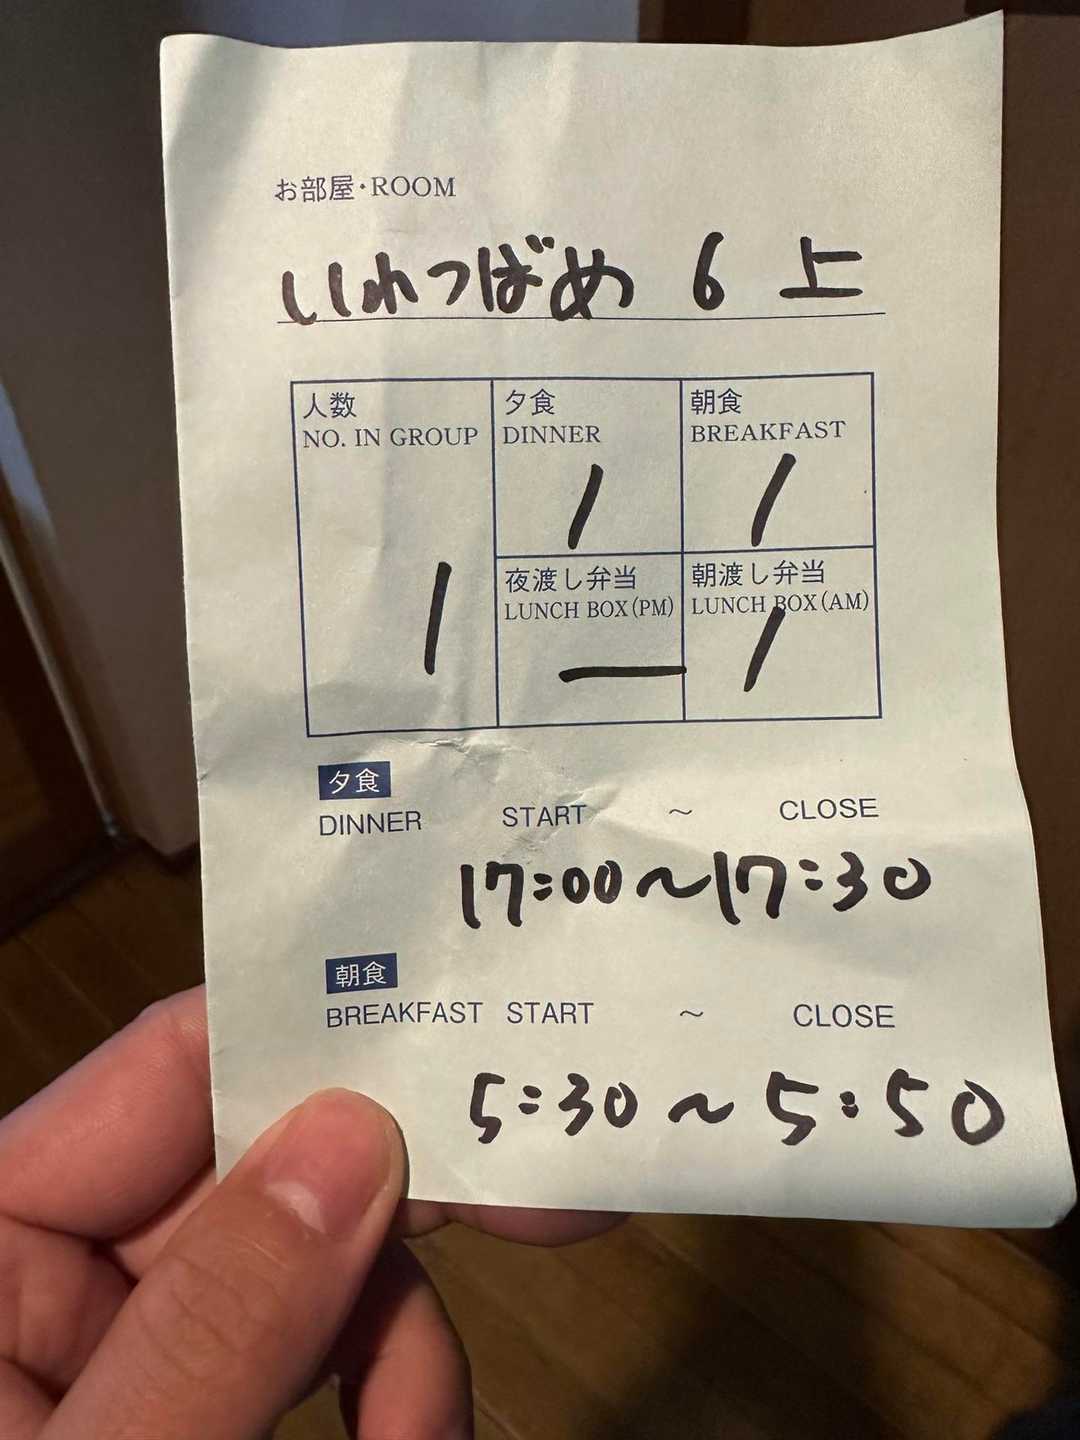 お部屋・ROOM
いわつばめ 6 上
人数
NO. IN GROUP
1
夕食
DINNER
1
朝食
BREAKFAST
1
夜渡し弁当
LUNCH BOX(PM)
—
朝渡し弁当
LUNCH BOX(AM)
1
夕食
DINNER START ～ CLOSE
17:00～17:30
朝食
BREAKFAST START ～ CLOSE
5:30～5:50